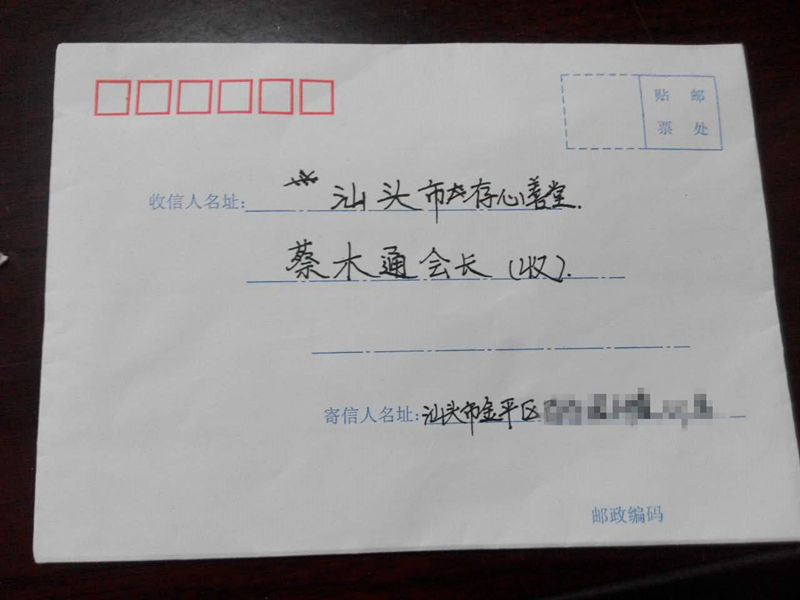 贴 邮
票 处
收信人名址: 汕头市存心善堂.
蔡木通会长(收).
寄信人名址: 汕头市金平区
邮政编码